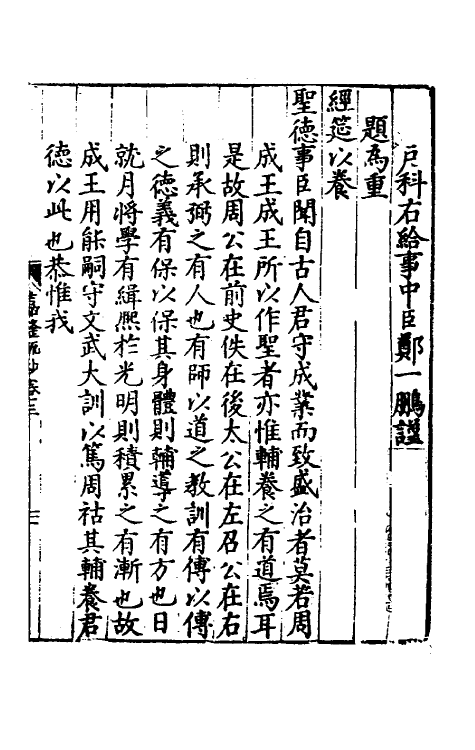 戶科右給事中臣鄭一鵬謹
題為重
經筵以養
聖德事臣聞自古人君守成業而致盛治者莫若周
成王成王所以作聖者亦惟輔養之有道焉耳
是故周公在前史佚在後太公在左召公在右
則承弼之有人也有師以道之教訓有傅以傅
之德義有保以保其身體則輔導之有方也日
就月將學有緝熈於光明則積累之有漸也故
成王用能嗣守文武大訓以篤周祜其輔養君
德以此也恭惟我
嘉隆疏抄卷三